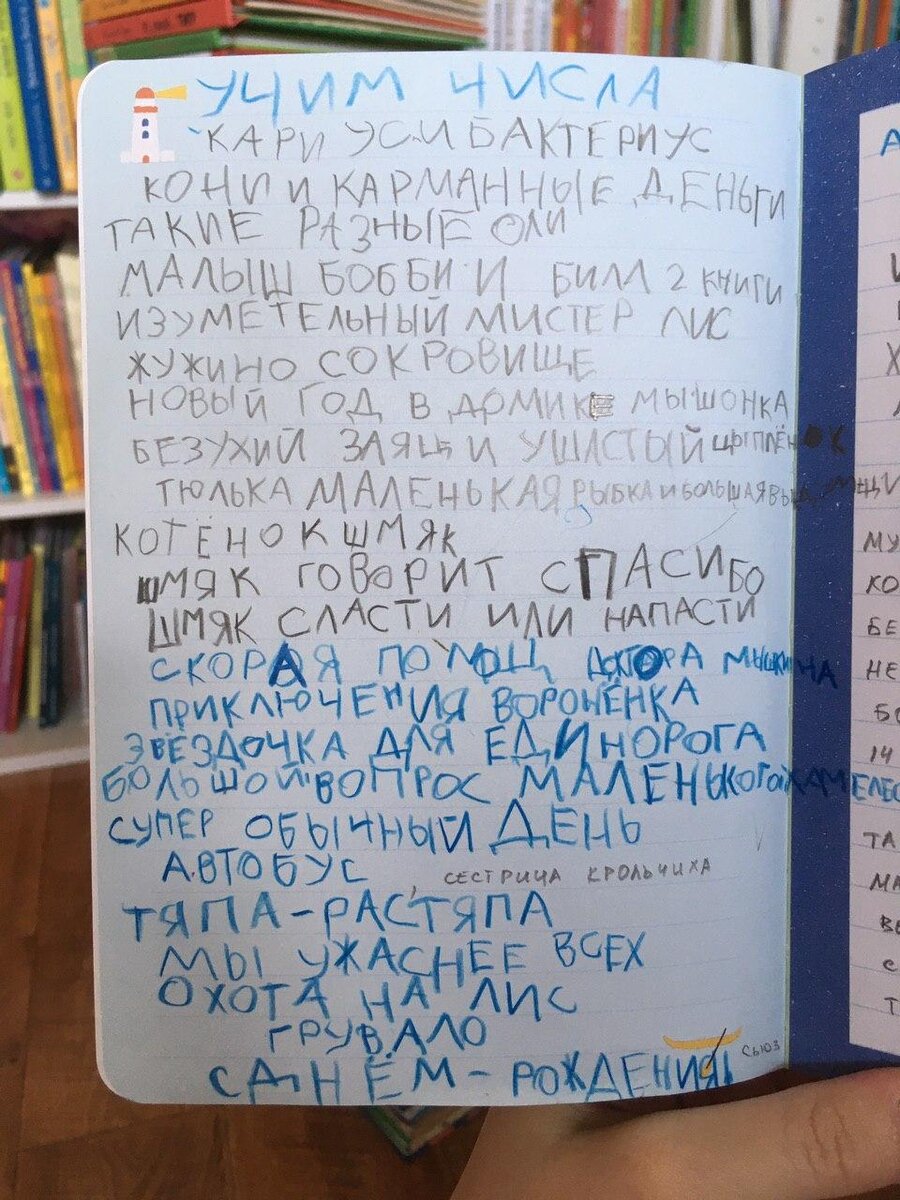 УЧИМ ЧИСЛА
КАРИ УСИ БАКТЕРИУС
КОНИ И КАРМАННЫЕ ДЕНЬГИ
ТАКИЕ РАЗНЫЕ ОЛИ
МАЛЫШ БОББИ И БИЛЛ 2 КНИГИ
ИЗУМЕТЕЛЬНЫЙ МИСТЕР ЛИС
ЖУЖИНО СОКРОВИЩЕ
НОВЫЙ ГОД В ДОМИКЕ МЫШОНКА
БЕЗУХИЙ ЗАЯЦ И УШАСТЫЙ ЦЫПЛЁНОК
ТЮЛЬКА МАЛЕНЬКАЯ РЫБКА И БОЛЬШАЯ
КОТЁНОК ШМЯК
ШМЯК ГОВОРИТ СПАСИБО
ШМЯК СЛАСТИ ИЛИ НАПАСТИ
СКОРАЯ ПОМОЩ ДОКТОРА МЫШКИНА
ПРИКЛЮЧЕНИЯ ВОРОНЁНКА
ЗВЁЗДОЧКА ДЛЯ ЕДИНОРОГА
БОЛЬШОЙ ВОПРОС МАЛЕНЬКОГО ХАМЕЛЕО
СУПЕР ОБЫЧНЫЙ ДЕНЬ
АВТОБУС, СЕСТРИЦА КРОЛЬЧИХА
ТЯПА-РАСТЯПА
МЫ УЖАСНЕЕ ВСЕХ
ОХОТА НА ЛИС
ГРУВАЛО
С ДНЁМ-РОЖДЕНИЯ! СЬЮЗ